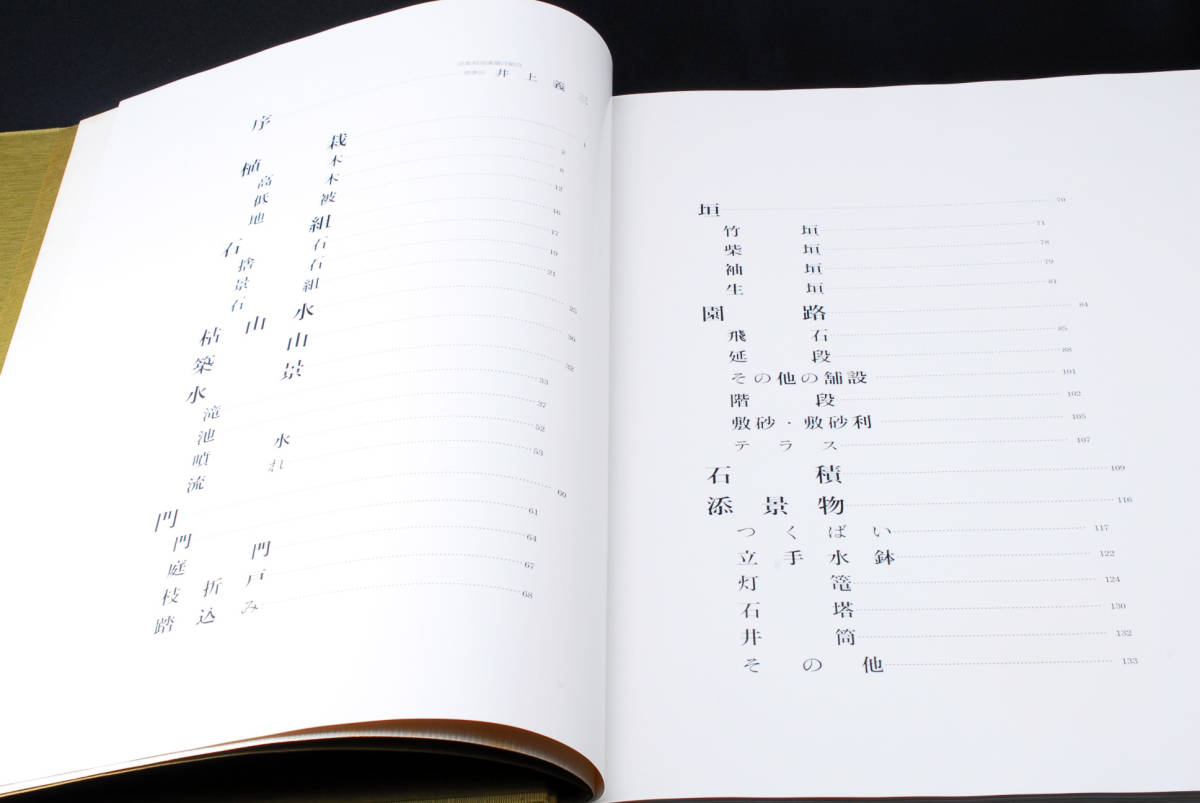 序 井上義三
植栽 1
高木 2
低木 8
地被 12
石組 16
捨石 17
景石 19
石組 21
枯山水 25
築山 30
水景 32
滝 33
池 37
噴水 52
流れ 53
門 60
門 61
庭門 64
枝折戸 67
踏込み 68
垣 70
竹垣 71
柴垣 78
袖垣 79
生垣 81
園路 84
飛石 85
延段 88
その他の舗設 101
階段 102
敷砂・敷砂利 105
テラス 107
石積 109
添景物 116
つくばい 117
立手水鉢 122
灯篭 124
石塔 130
井筒 132
その他 133